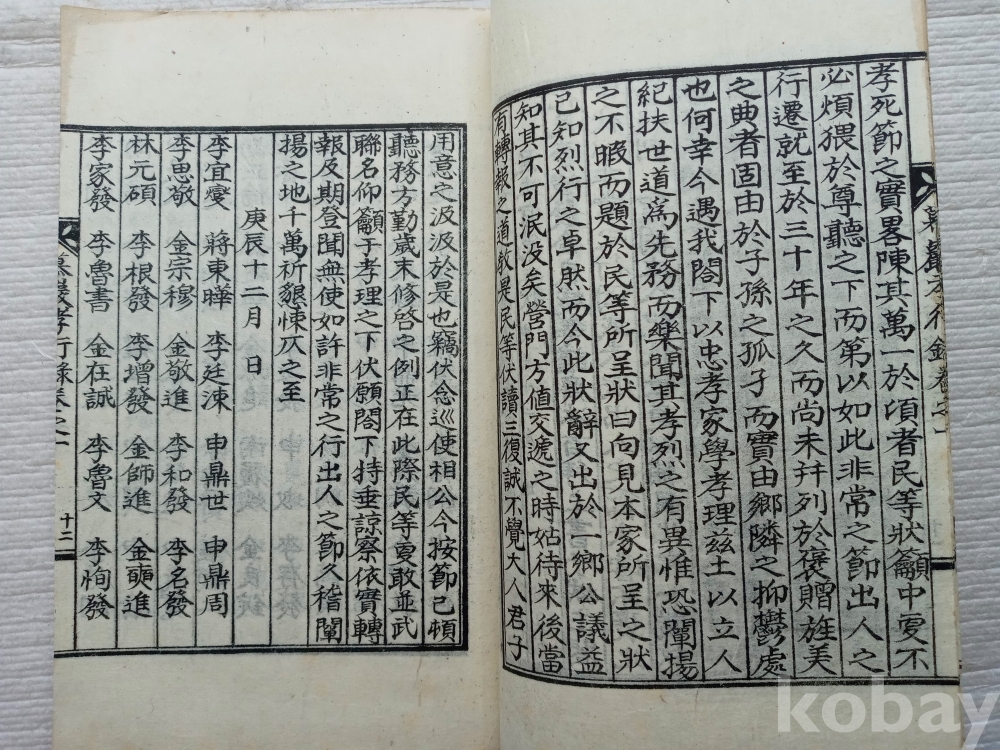 孝死節之實畧陳其萬一於頃者民等狀籲中更不
必煩猥於尊聽之下而第以如此非常之節出人之
行遷就至於三十年之久而尚未幷列於褒贈旌美
之典者固由於子孫之孤子而實由鄉隣之抑鬱處
也何幸今遇我閤下以忠孝家學孝理玆土以立人
紀扶世道爲先務而樂聞其孝烈之有異惟恐闡揚
之不暇而題於民等所呈狀曰向見本家所呈之狀
已知烈行之卓然而今此狀辭又出於一鄉公議益
知其不可泯没矣營門方値交遞之時姑待來後當
有轉報之道敎是民等伏讀三復誠不覺大人君子
孝行錄卷之一
用意之汲汲於是也竊伏念巡使相公今按節已頓
聽務方勤歲末修啓之例正在此際民等更敢並武
聯名仰籲于孝理之下伏願閤下持垂諒察依實轉
報及期登聞無使如許非常之行出人之節久稽闡
揚之地千萬祈懇悚仄之至
庚辰十二月 日
李宜燮 蔣東曄 李廷涑 申鼎世 申鼎周
李思敬 金宗穆 金敬進 李和發 李名發
林元碩 李根發 李增發 金師進 金進
李家發 李魯書 金在誠 李魯文 李恂發
孝行錄卷之一 十三
kobay